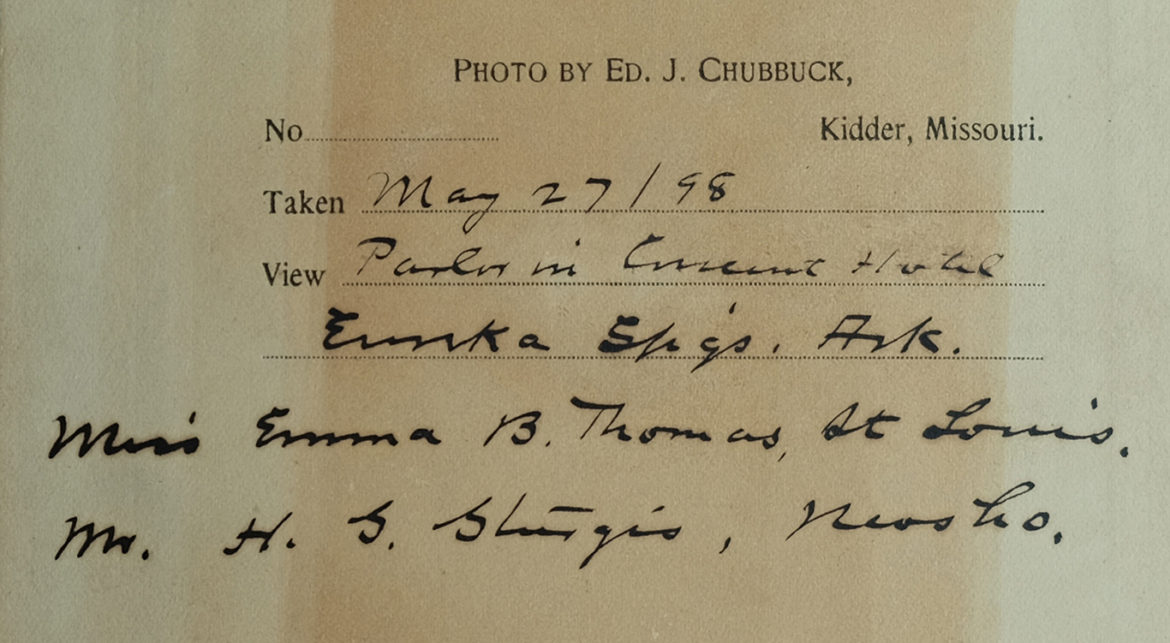 PHOTO BY ED. J. CHUBBUCK,
No. Kidder, Missouri.
Taken May 27/98
View Parlor in Crescent Hotel
Eureka Sp'gs. Ark.
Miss Emma B. Thomas, St Louis.
Mr. H. S. Sturgis, Neosho.